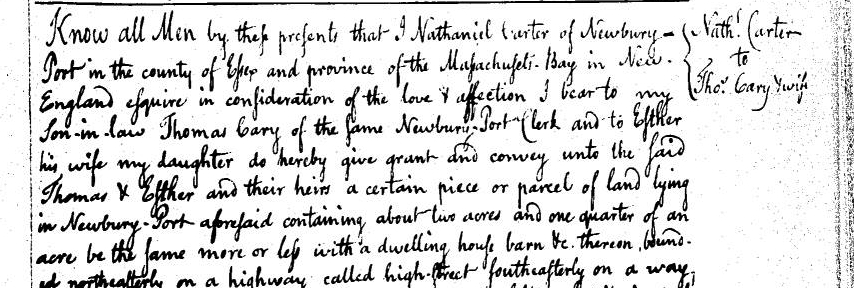 Know all Men by these presents that I Nathaniel Carter of Newbury-
Port in the county of Essex and province of the Massachusets-Bay in New-
England esquire in consideration of the love & affection I bear to my
Son-in-law Thomas Cary of the same Newbury-Port Clerk and to Esther
his wife my daughter do hereby give grant and convey unto the said
Thomas & Esther and their heirs a certain piece or parcel of land lying
in Newbury-Port aforesaid containing about two acres and one quarter of an
acre be the same more or less with a dwelling house barn &c. thereon, bound-
ed northeasterly on a highway called high-street southeasterly on a way,
Nathl. Carter
to
Thos. Cary & wife